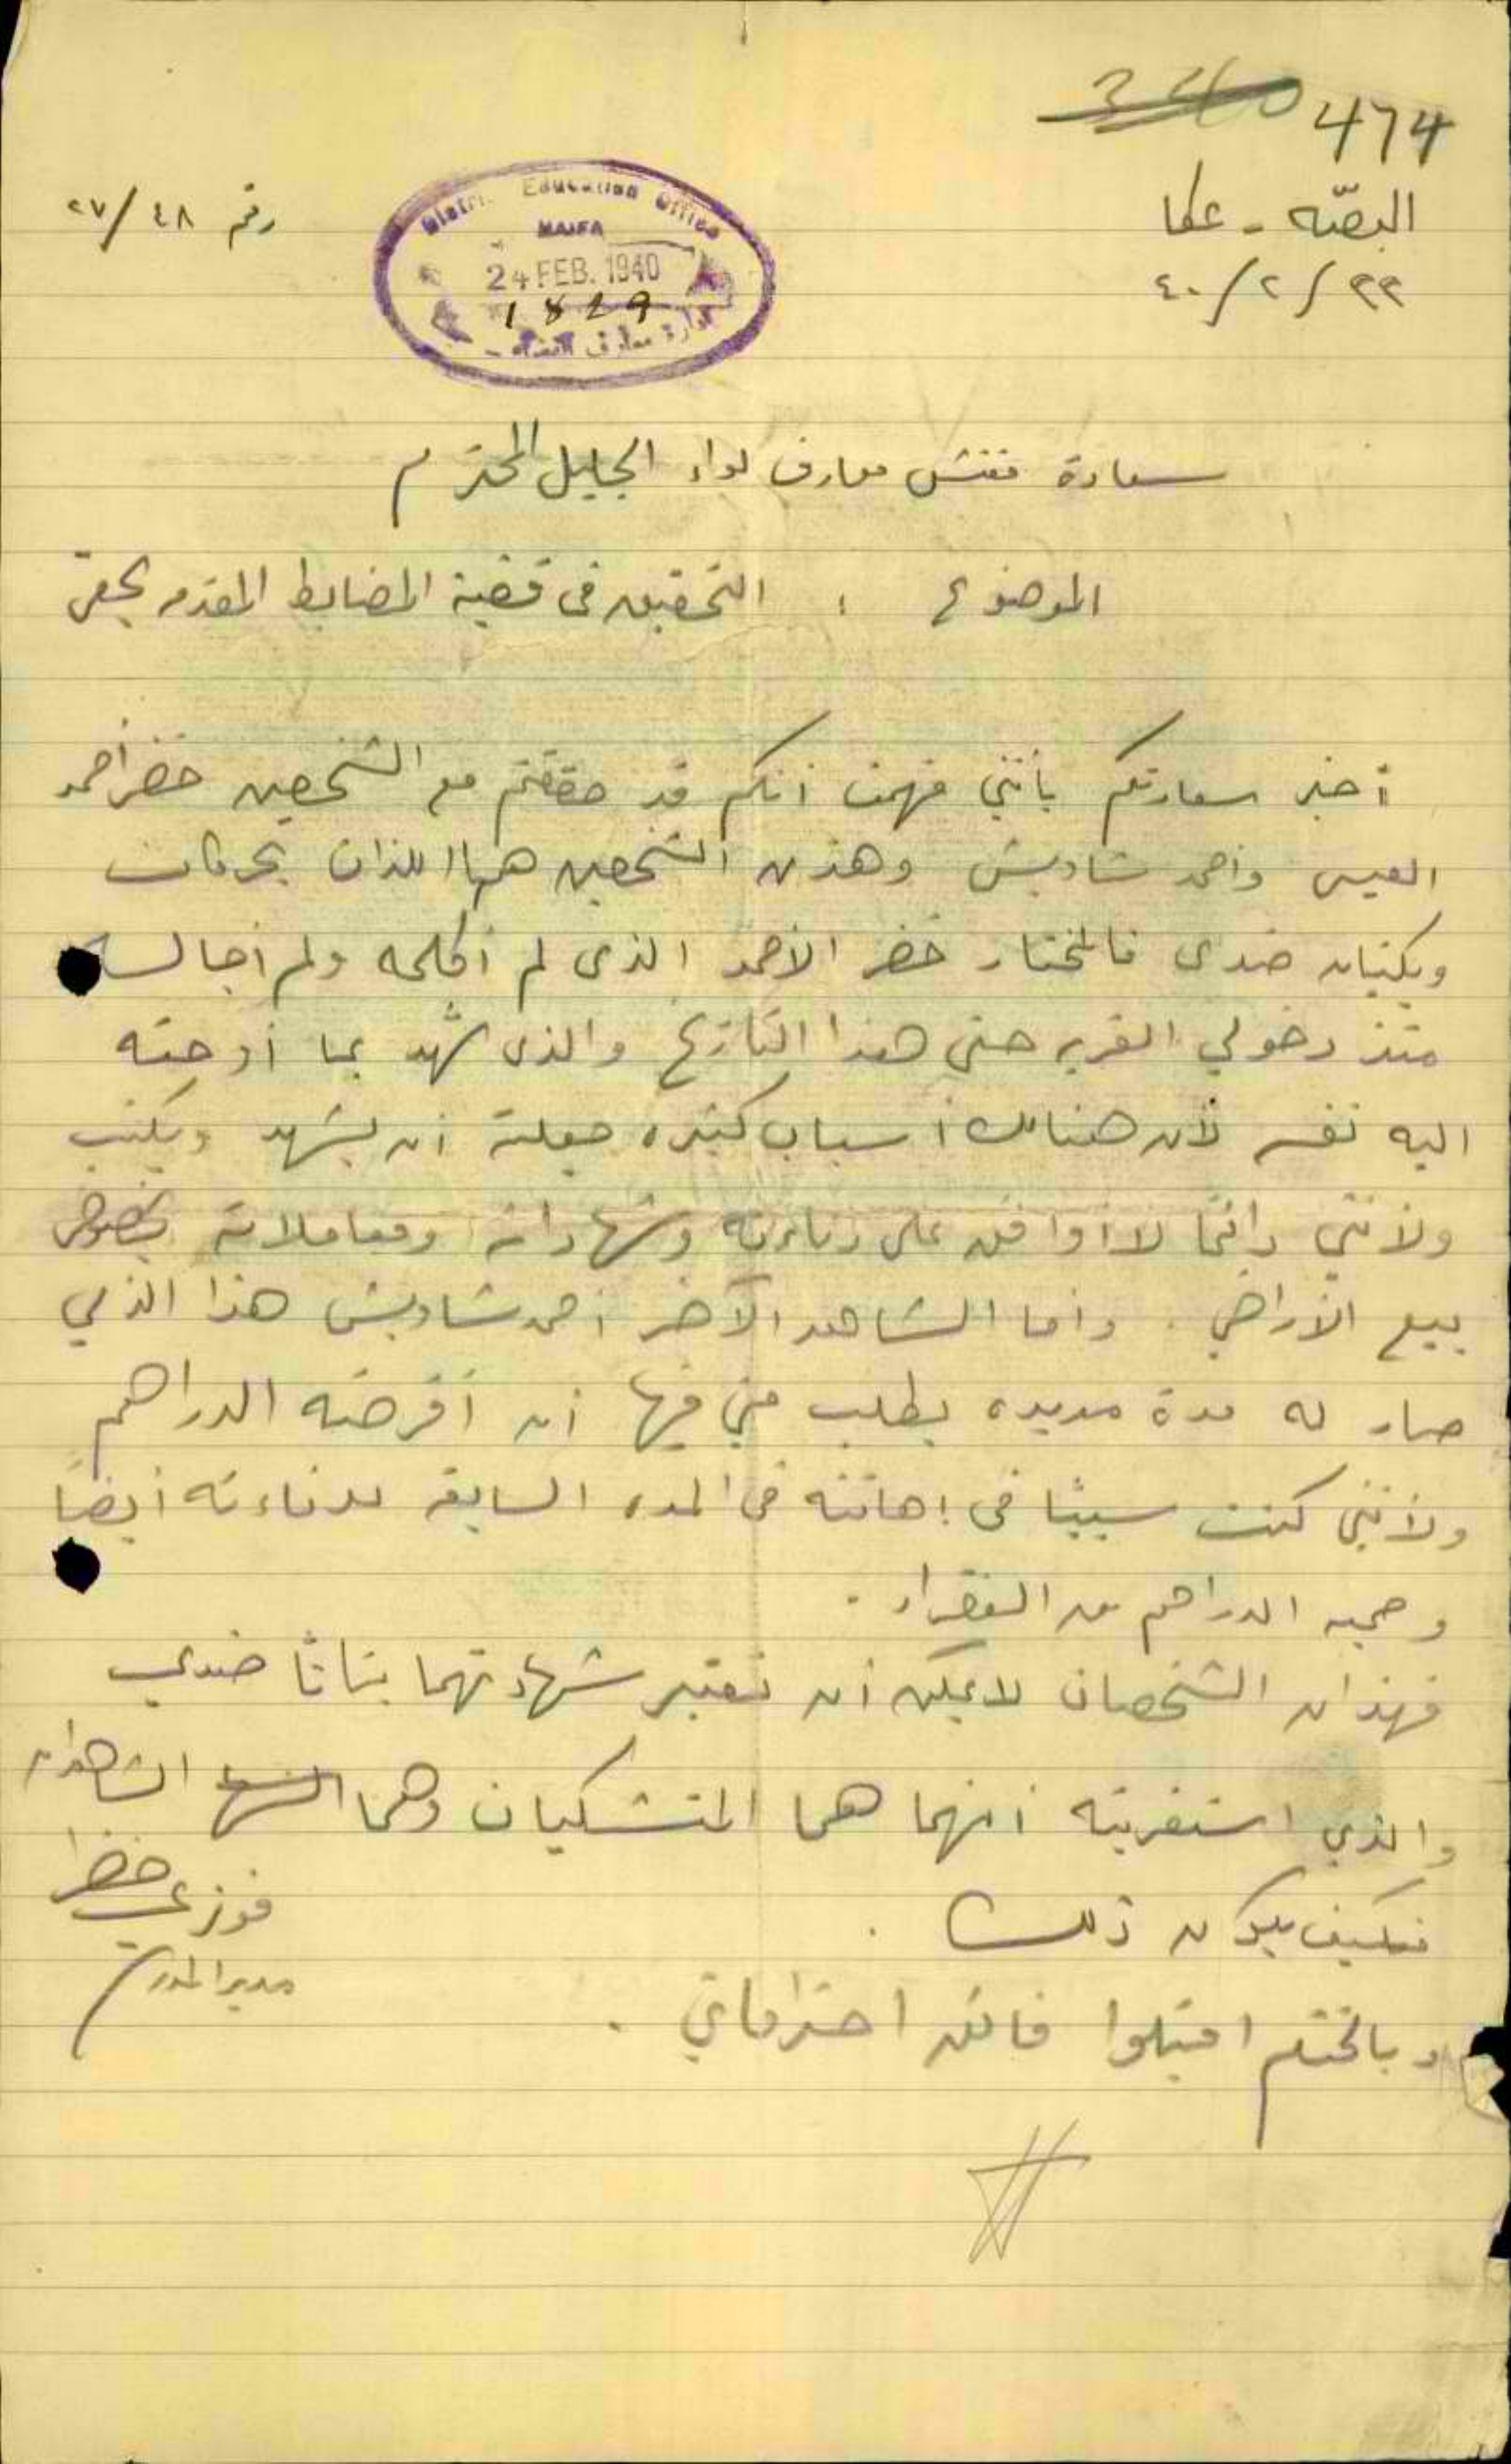 474
البصّه - عكا
٢٣/٢/٤٠
رقم ٤٨/٢٧
District Education Office
HAIFA
24 FEB. 1940
1829
سعادة مفتش معارف لواء الجليل المحترم
الموضوع : التحقيق في قضية المضابط المقدمه بحقي
أخبر سعادتكم بأنني فهمت انكم قد حققتم مع الشخصين خضر أحمد
العيسى واحمد شاويش وهذين الشخصين هما اللذان يحركان
ويكتبان ضدي فالمختار خضر الأحمد الذي لم أكلمه ولم أجالسه
منذ دخولي القريه حتى هذا التاريخ والذي شهد بما أوحته
اليه نفسه لأن هنالك أسباب كثيره جعلته ان يشهد ويكتب
ولأنني دائما لا أوافق على دناءته وشهاداته ومعاملاته بخصوص
بيع الأراضي . واما الشاهد الآخر احمد شاويش هذا الذي
صار له مدة مديده يطلب مني فيها أن أقرضه الدراهم
ولأنني كنت سببا في إهانته في المده السابقه لدناءته أيضاً
وجمعه الدراهم من الفقراء .
فهذان الشخصان لا يمكن أن تعتبر شهادتهما بتاتاً ضدي
والذي استغربته أنهما هما المتشكيان وهما الشاهدان
فكيف يكون ذلك .
وبالختم اقبلوا فائق احتراماتي .
فوزي خضرا
مدير المدرسة